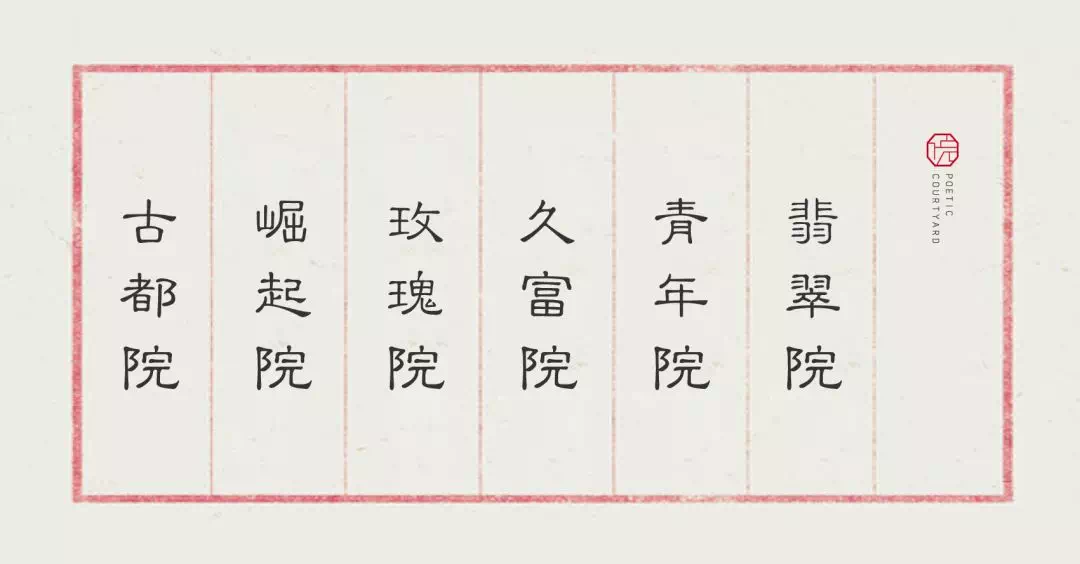 POETIC
COURTYARD
翡翠院
青年院
久富院
玫瑰院
崛起院
古都院